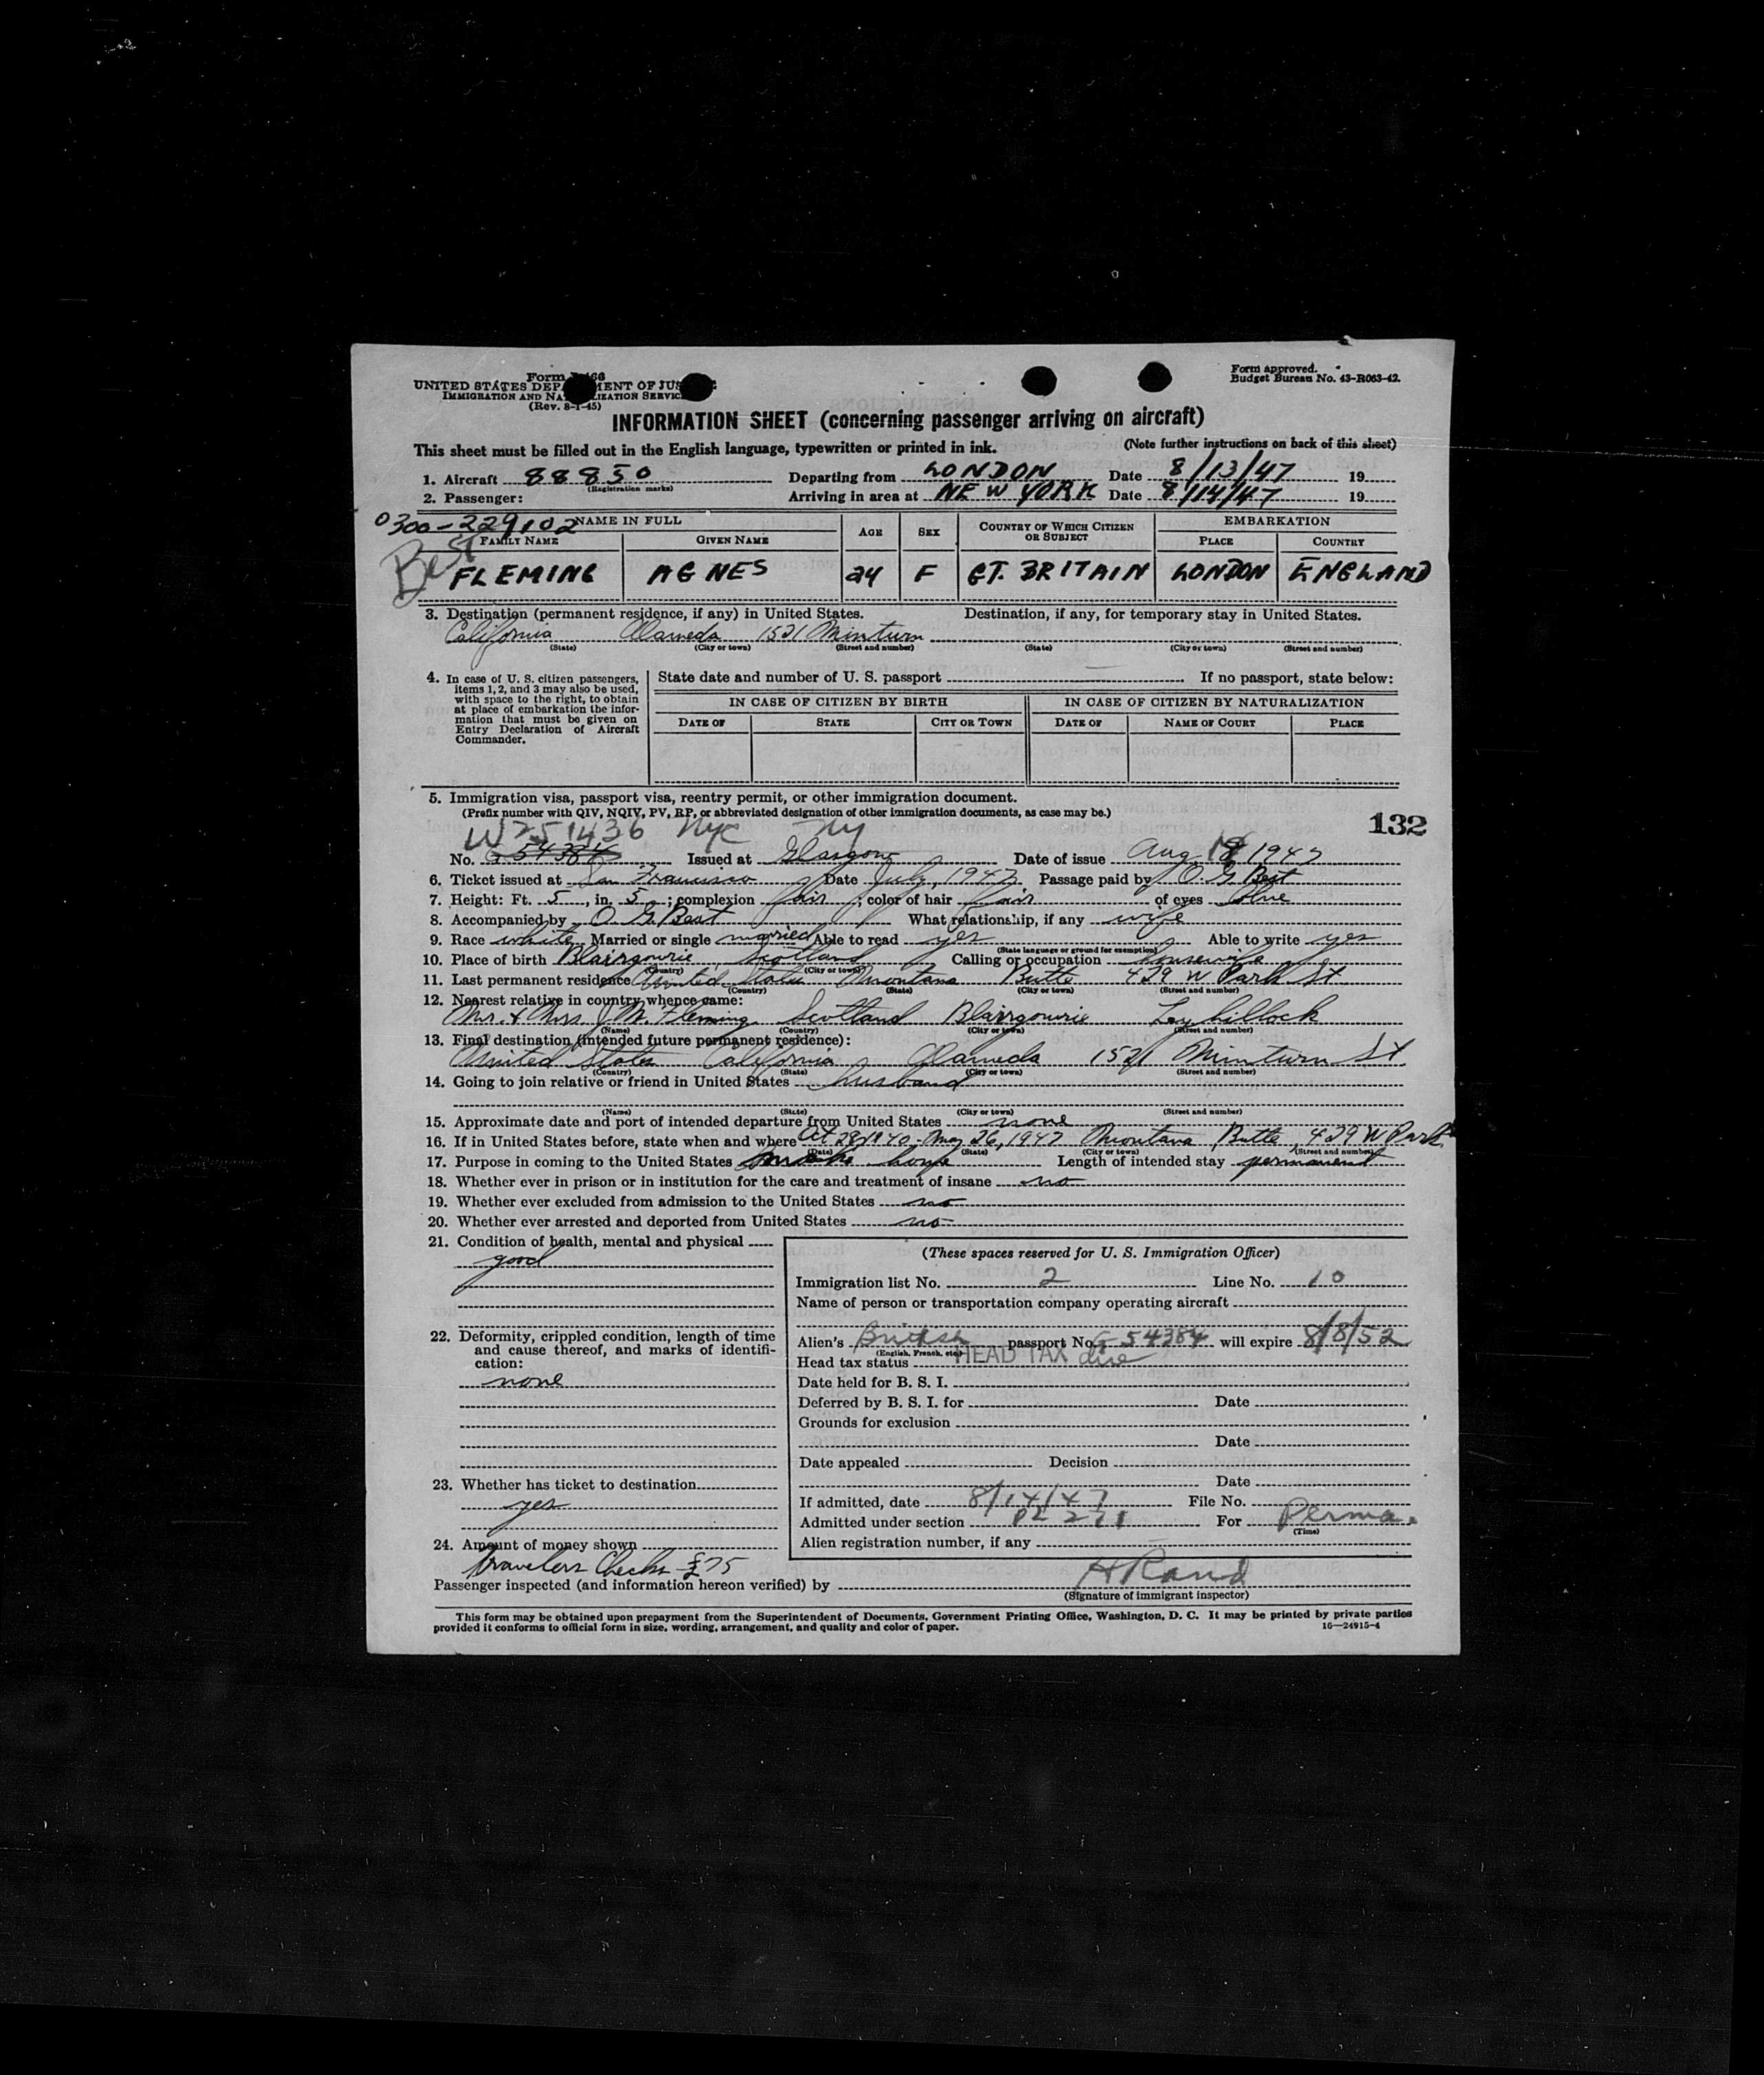 Form I-466
UNITED STATES DEPARTMENT OF JUSTICE
IMMIGRATION AND NATURALIZATION SERVICE
(Rev. 8-1-45)
Form approved.
Budget Bureau No. 43-R063-42.
INFORMATION SHEET (concerning passenger arriving on aircraft)
This sheet must be filled out in the English language, typewritten or printed in ink. (Note further instructions on back of this sheet)
1. Aircraft 88850 (Registration marks) Departing from LONDON Date 8/13/47 19
2. Passenger: Arriving in area at NEW YORK Date 8/14/47 19
0300-229102 NAME IN FULL AGE SEX COUNTRY OF WHICH CITIZEN OR SUBJECT EMBARKATION
FAMILY NAME GIVEN NAME PLACE COUNTRY
Best FLEMING AGNES 24 F GT. BRITAIN LONDON ENGLAND
3. Destination (permanent residence, if any) in United States. Destination, if any, for temporary stay in United States.
California Alameda 1521 Minturn
(State) (City or town) (Street and number) (State) (City or town) (Street and number)
4. In case of U. S. citizen passengers, items 1, 2, and 3 may also be used, with space to the right, to obtain at place of embarkation the information that must be given on Entry Declaration of Aircraft Commander.
State date and number of U. S. passport If no passport, state below:
IN CASE OF CITIZEN BY BIRTH IN CASE OF CITIZEN BY NATURALIZATION
DATE OF STATE CITY OR TOWN DATE OF NAME OF COURT PLACE
5. Immigration visa, passport visa, reentry permit, or other immigration document.
(Prefix number with QIV, NQIV, PV, RP, or abbreviated designation of other immigration documents, as case may be.)
132
W251436 NYC NY
No. G 54384 Issued at Glasgow Date of issue Aug 1947
6. Ticket issued at San Francisco Date July, 1947 Passage paid by O. G. Best
7. Height: Ft. 5, in. 5; complexion fair; color of hair fair of eyes blue
8. Accompanied by O. G. Best What relationship, if any wife
9. Race white Married or single married Able to read yes Able to write yes
(State language or ground for exemption)
10. Place of birth Blairgowrie Scotland Calling or occupation housewife
(Country) (City or town)
11. Last permanent residence United States Montana Butte 429 W Park St
(Country) (State) (City or town) (Street and number)
12. Nearest relative in country whence came:
Mr. & Mrs. J. M. Fleming Scotland Blairgowrie
(Name) (Country) (City or town) (Street and number)
13. Final destination (intended future permanent residence):
United States California Alameda 1521 Minturn St
(Country) (State) (City or town) (Street and number)
14. Going to join relative or friend in United States husband
(Name) (State) (City or town) (Street and number)
15. Approximate date and port of intended departure from United States none
16. If in United States before, state when and where May 26, 1947 Montana Butte, 429 W Park
(Date) (State) (City or town) (Street and number)
17. Purpose in coming to the United States make home Length of intended stay permanent
18. Whether ever in prison or in institution for the care and treatment of insane no
19. Whether ever excluded from admission to the United States no
20. Whether ever arrested and deported from United States no
21. Condition of health, mental and physical
good
22. Deformity, crippled condition, length of time and cause thereof, and marks of identification:
none
23. Whether has ticket to destination
yes
24. Amount of money shown
Travelers Checks £75
(These spaces reserved for U. S. Immigration Officer)
Immigration list No. 2 Line No. 10
Name of person or transportation company operating aircraft
Alien's British passport No. G 54384 will expire 8/8/52
(English, French, etc.)
Head tax status HEAD TAX due
Date held for B. S. I.
Deferred by B. S. I. for Date
Grounds for exclusion
Date
Date appealed Decision
Date
If admitted, date 8/14/47 File No.
Admitted under section PL 271 For Perma.
(Time)
Alien registration number, if any
Passenger inspected (and information hereon verified) by H Rand
(Signature of immigrant inspector)
This form may be obtained upon prepayment from the Superintendent of Documents, Government Printing Office, Washington, D. C. It may be printed by private parties
provided it conforms to official form in size, wording, arrangement, and quality and color of paper. 16—24915-4